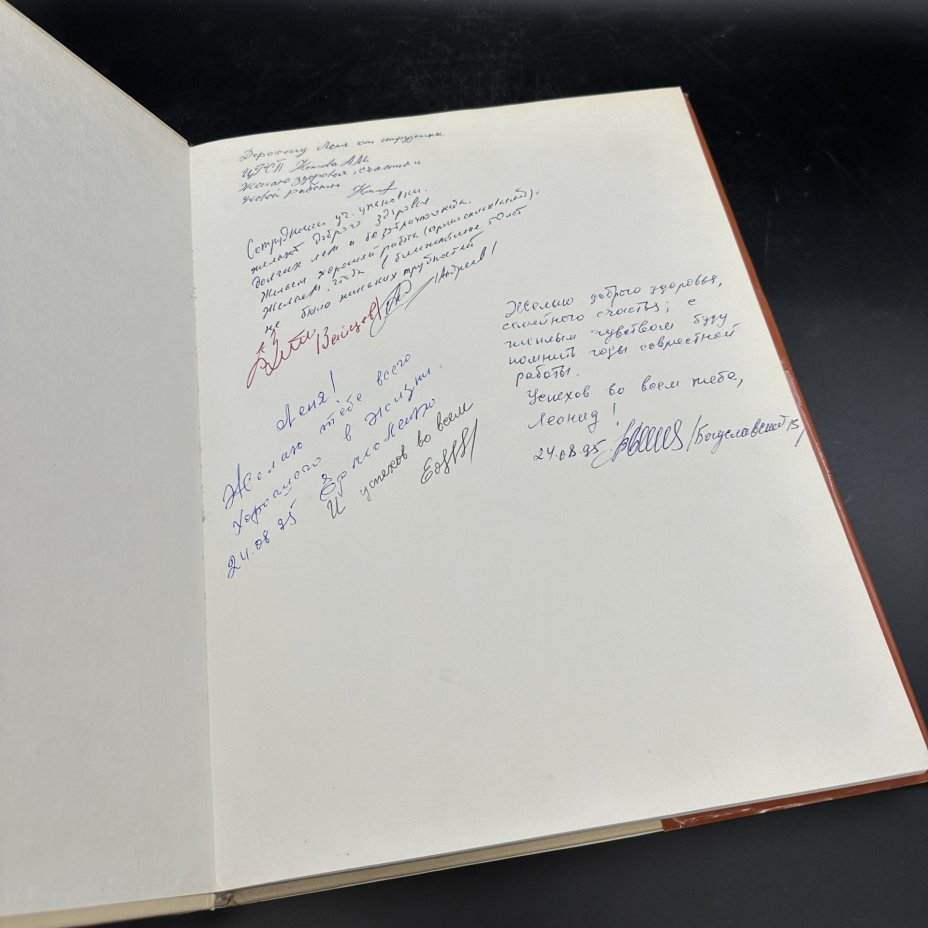 Дорогому Лене от сотрудника
ЦТСП
Желаю здоровья, счастья и
удачной работы
Сотрудники уч. упаковки.
желают доброго здоровья
долгих лет и
Желаем хорошей работы
желаем, чтоб в ближайшие 50 лет
не было никаких трудностей
/Андреев/
Леня!
Желаю тебе всего
хорошего в жизни.
24.08.95
И успехов во всем
Желаю доброго здоровья,
семейного счастья; с
теплым чувством буду
помнить годы совместной
работы.
Успехов во всем тебе,
Леонид!
24.08.95. /Богуславский В/